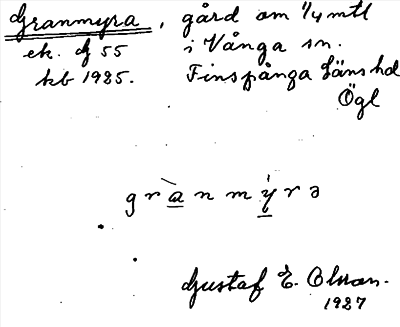 Granmyra, gård om 1/4 mtl
ek. bf 55 i Vånga sn.
kb 1925. Finspånga läns hd
Ögl
gra̠nmy̠rə
Gustaf E. Olsson.
1927